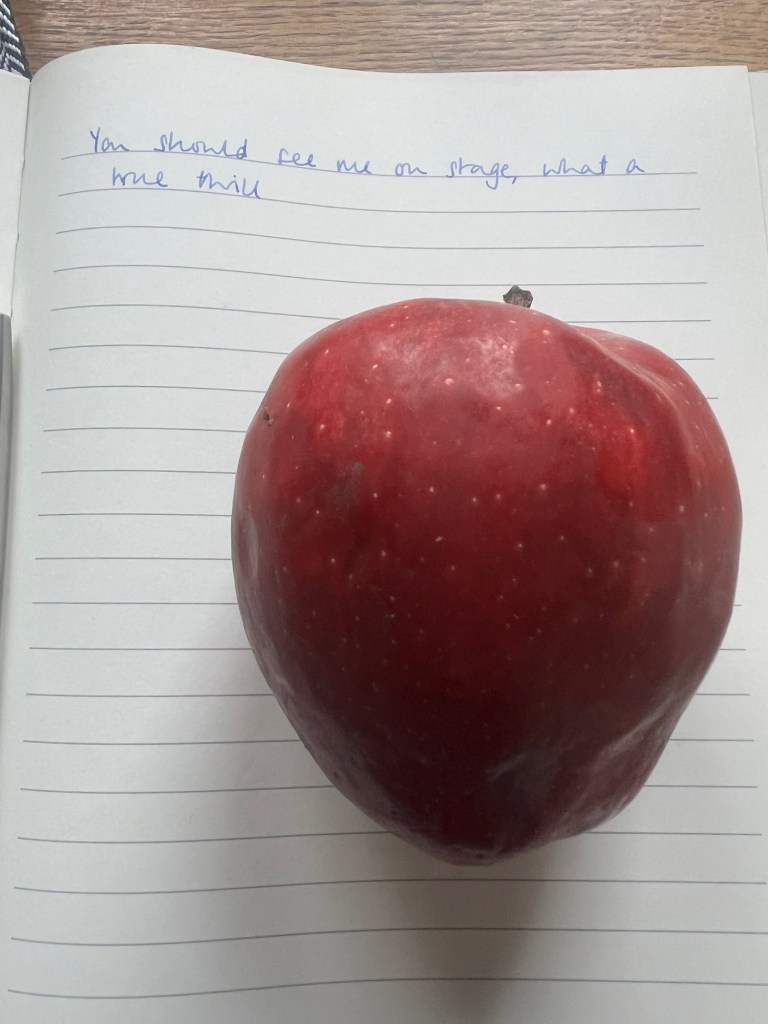 You should see me on stage, what a
true thrill